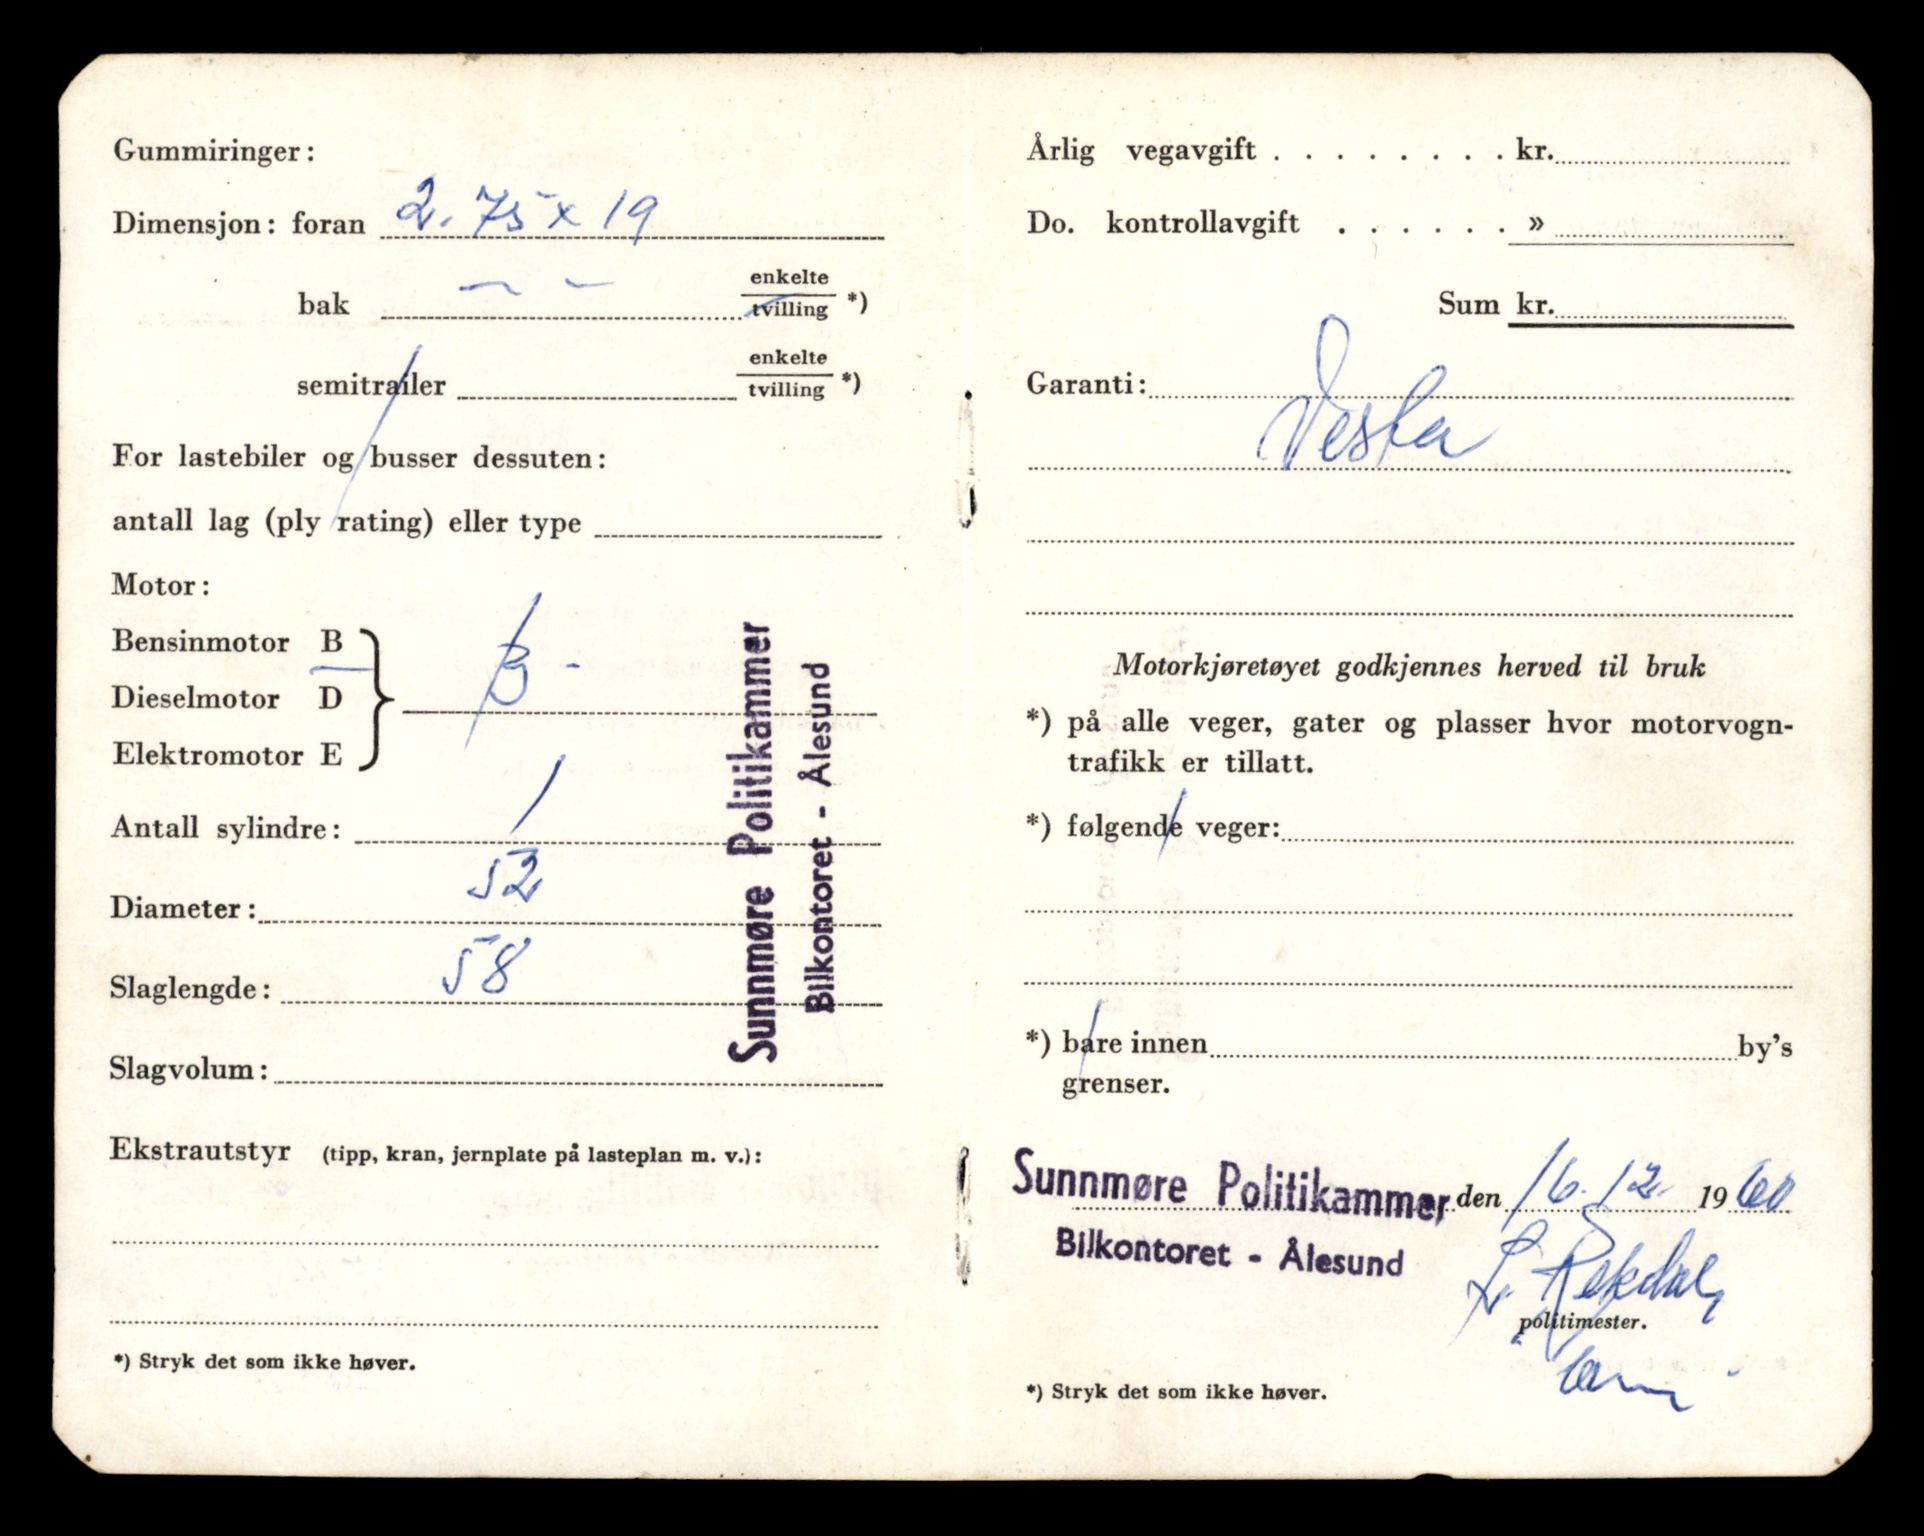 Gummiringer:
Dimensjon: foran 2.75 x 19
bak — — enkelte
tvilling *)
semitrailer enkelte
tvilling *)
For lastebiler og busser dessuten:
antall lag (ply rating) eller type
Motor:
Bensinmotor B
Dieselmotor D
B -
Elektromotor E
Antall sylindre: 1
Diameter: 52
Slaglengde: 58
Slagvolum:
Ekstrautstyr (tipp, kran, jernplate på lasteplan m. v.):
*) Stryk det som ikke høver.
Sunnmøre Politikammer
Bilkontoret - Ålesund
Årlig vegavgift . . . . . . . . kr.
Do. kontrollavgift . . . . . . »
Sum kr.
Garanti:
Vesta
Motorkjøretøyet godkjennes herved til bruk
*) på alle veger, gater og plasser hvor motorvogn-
trafikk er tillatt.
*) følgende veger:
*) bare innen by's
grenser.
Sunnmøre Politikammer den 16.12. 1960
Bilkontoret - Ålesund
L. Rekdal
politimester.
*) Stryk det som ikke høver.